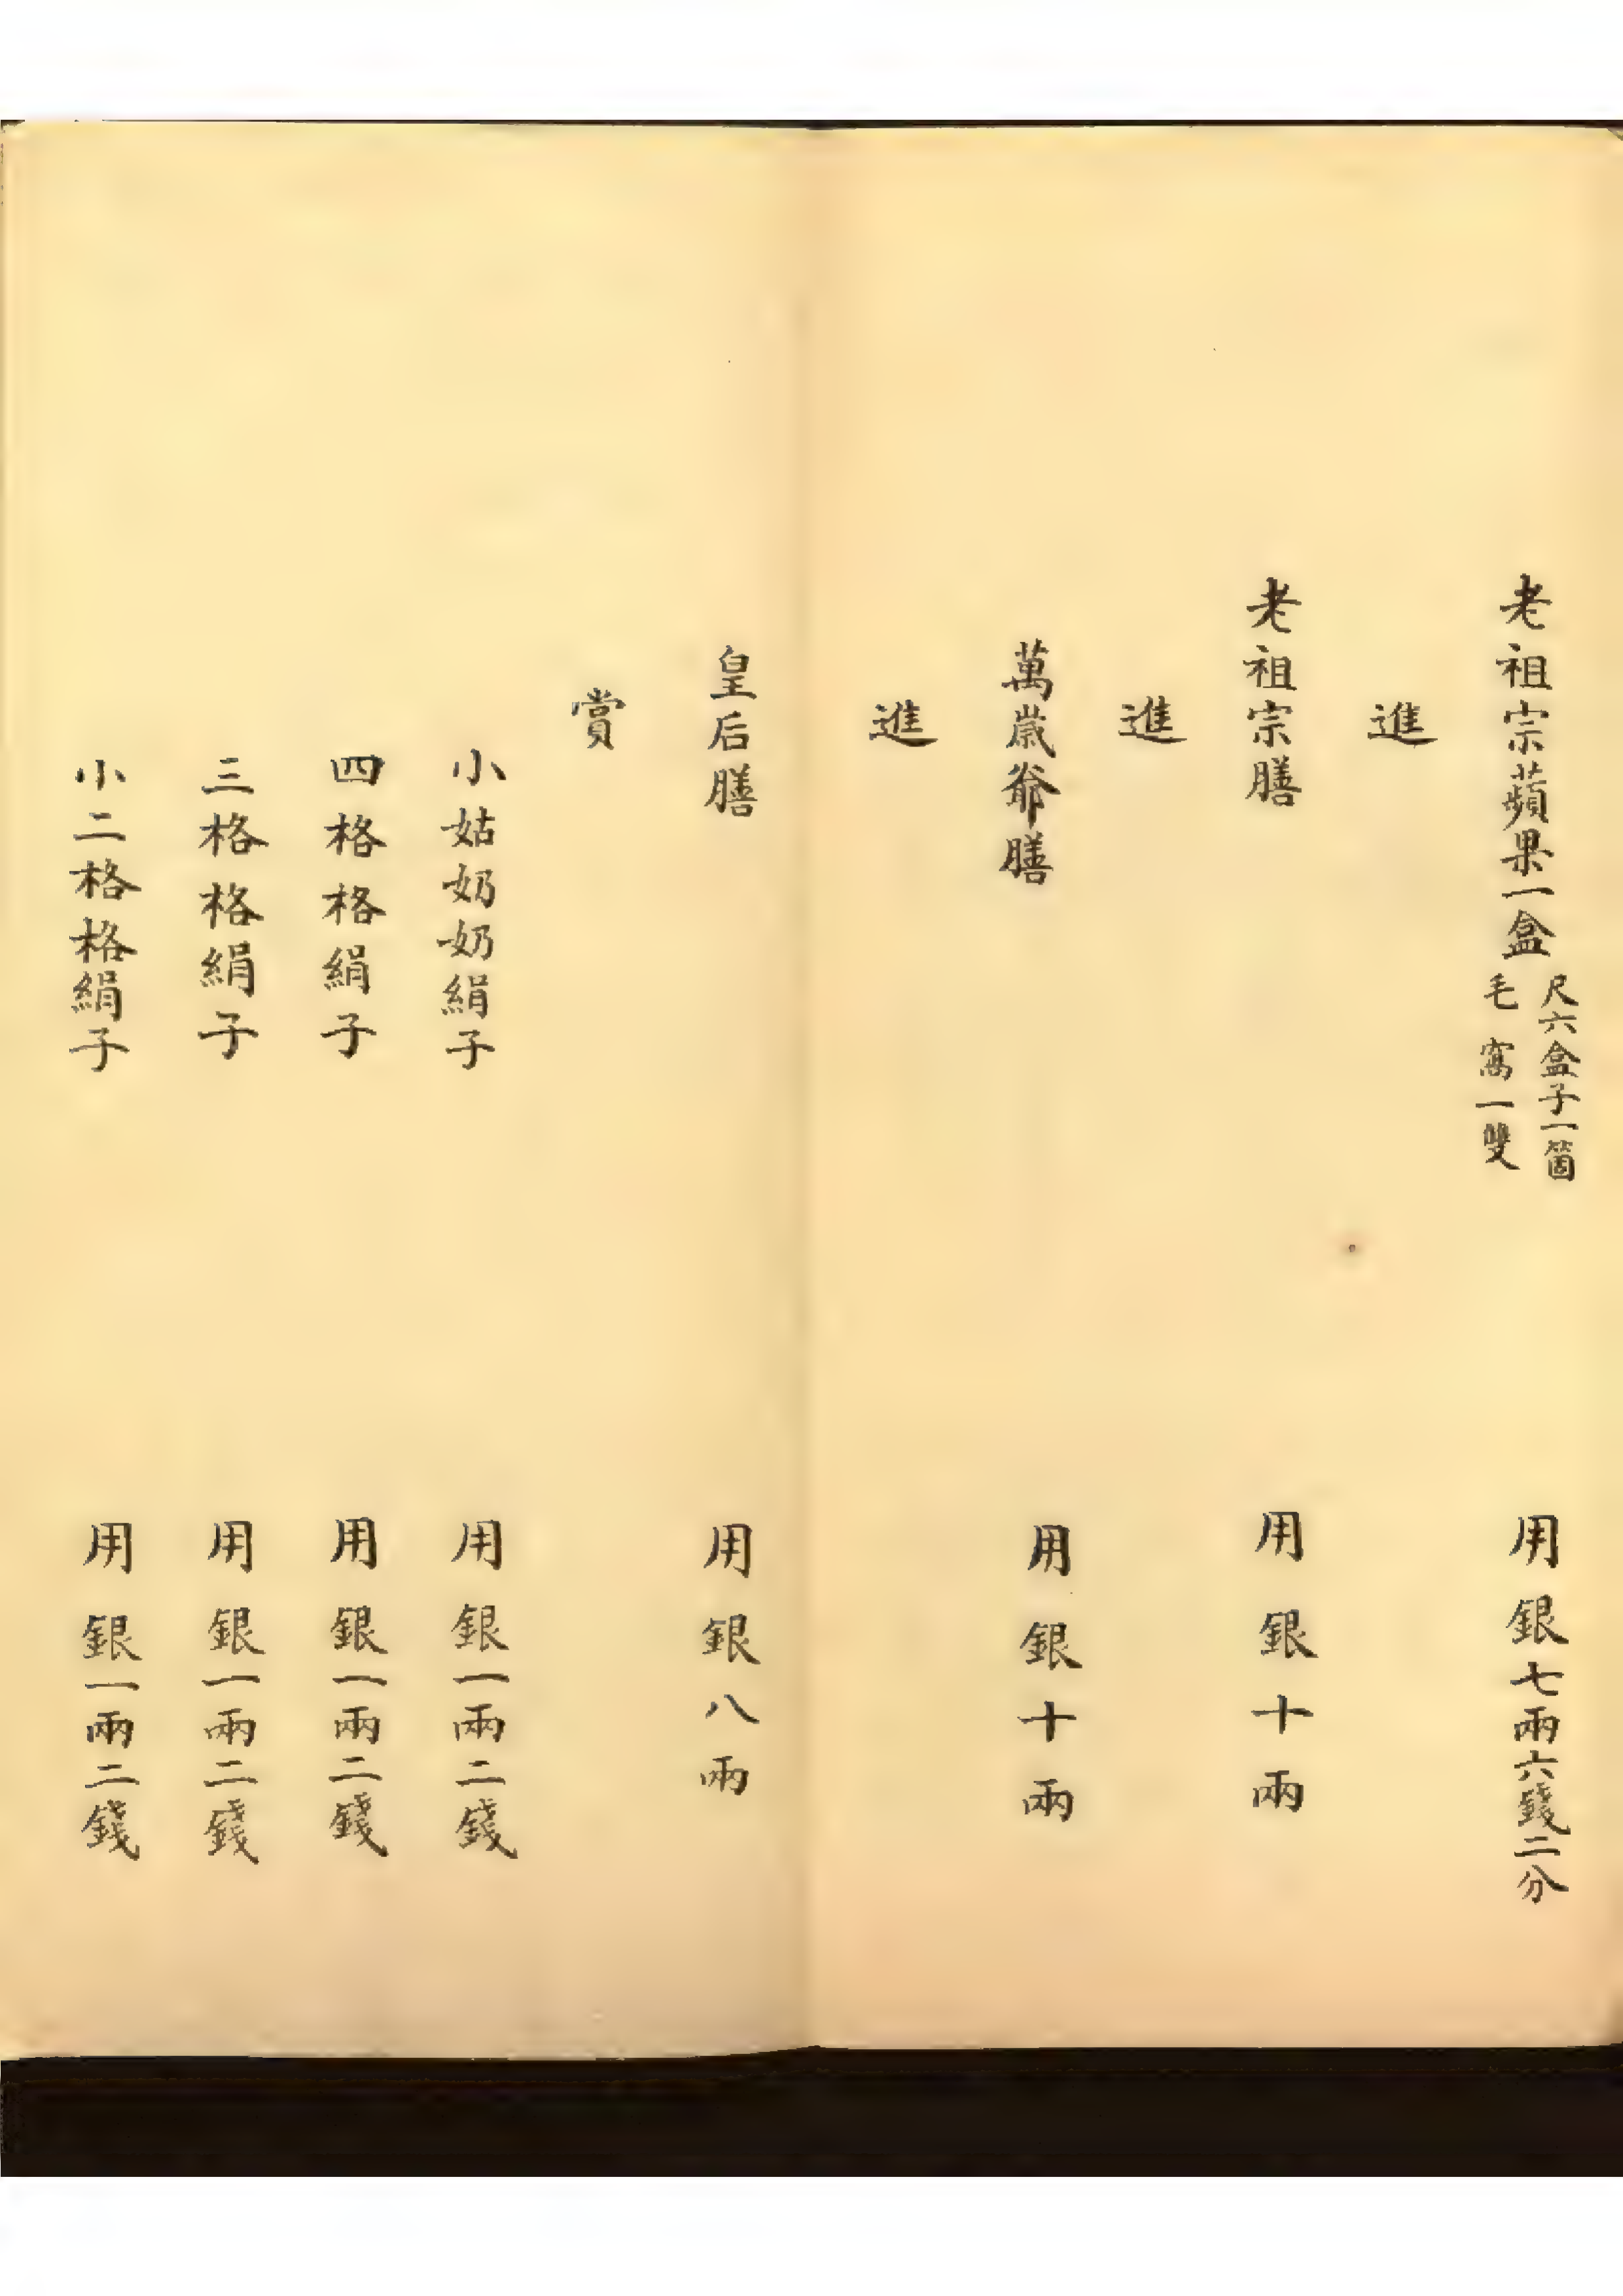 老祖宗蘋果一盒 尺六盒子一箇 毛窩一雙 用銀七兩六錢二分
進
老祖宗膳 用銀十兩
進
萬歲爺膳 用銀十兩
進
皇后膳 用銀八兩
賞
小姑奶奶絹子 用銀一兩二錢
四格格絹子 用銀一兩二錢
三格格絹子 用銀一兩二錢
小二格格絹子 用銀一兩二錢